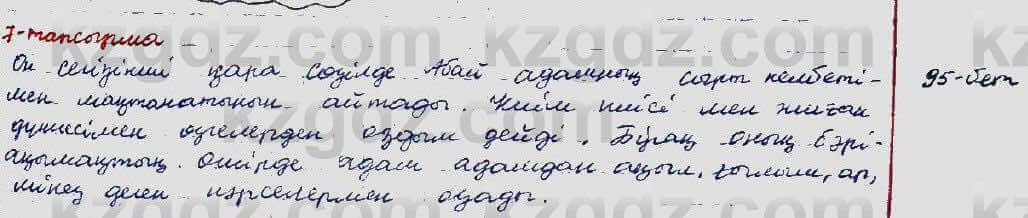 7-тапсырма
Он сегізінші қара сөзінде Абай адамның сырт келбеті-
мен мақтанатынын айтады. Киім киісі мен жиған
дүниесімен өзгелерден оздым дейді. Бірақ оның бәрі-
ақымақтық. Өмірде адам адамдан ақыл, ғылым, ар,
мінез деген нәрселермен озады.
95-бет
kzgdz.com